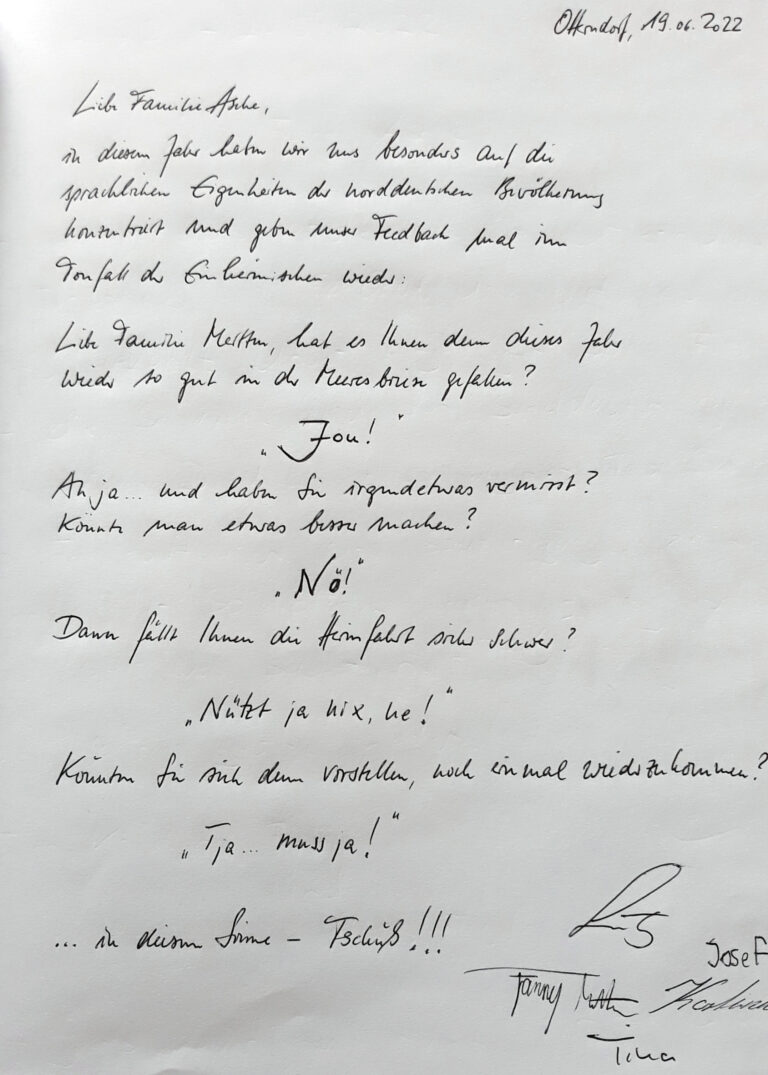 Otterndorf, 19.06.2022
Liebe Familie Asche,
in diesem Jahr haben wir uns besonders auf die
sprachlichen Eigenheiten der norddeutschen Bevölkerung
konzentriert und geben unser Feedback mal im
Tonfall der Einheimischen wieder:
Liebe Familie Mertten, hat es Ihnen denn dieses Jahr
wieder so gut in der Meeresbriese gefallen?
„Jou!"
Ah ja... und haben Sie irgendetwas vermisst?
Könnte man etwas besser machen?
„Nö!"
Dann fällt Ihnen die Heimfahrt sicher schwer?
„Nützt ja nix, ne!"
Könnten Sie sich denn vorstellen, noch einmal wiederzukommen?
„Tja... muss ja!"
... in diesem Sinne – Tschüß!!!
Josef
Fanny
Tina